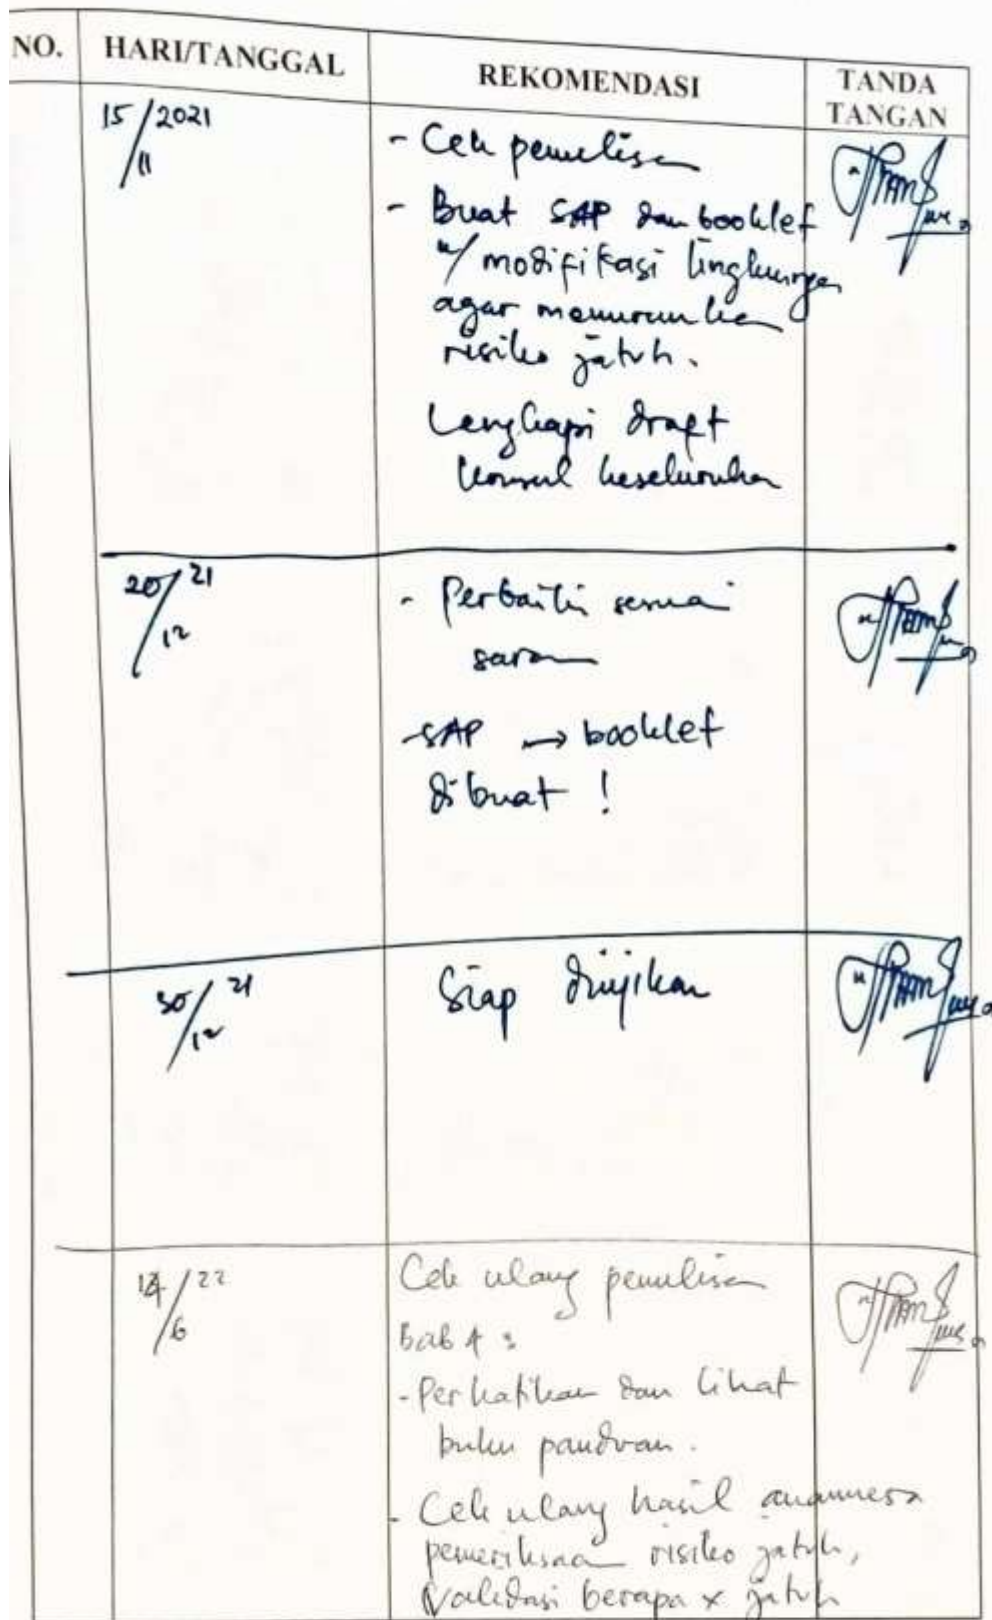 NO. HARI/TANGGAL REKOMENDASI TANDA TANGAN
15/11 2021
- Cek penulisan
- Buat SAP dan booklet
u/ modifikasi lingkungan
agar menurunkan
risiko jatuh.
Lengkapi draft
konsul keseluruhan
20/12 21
- Perbaiki sesuai
saran
- SAP → booklet
dibuat !
30/12 21
Siap diujikan
14/6 22
Cek ulang penulisan
Bab 4 :
- Perhatikan dan lihat
buku panduan.
- Cek ulang hasil anamnesa
pemeriksaan risiko jatuh,
validasi berapa x jatuh